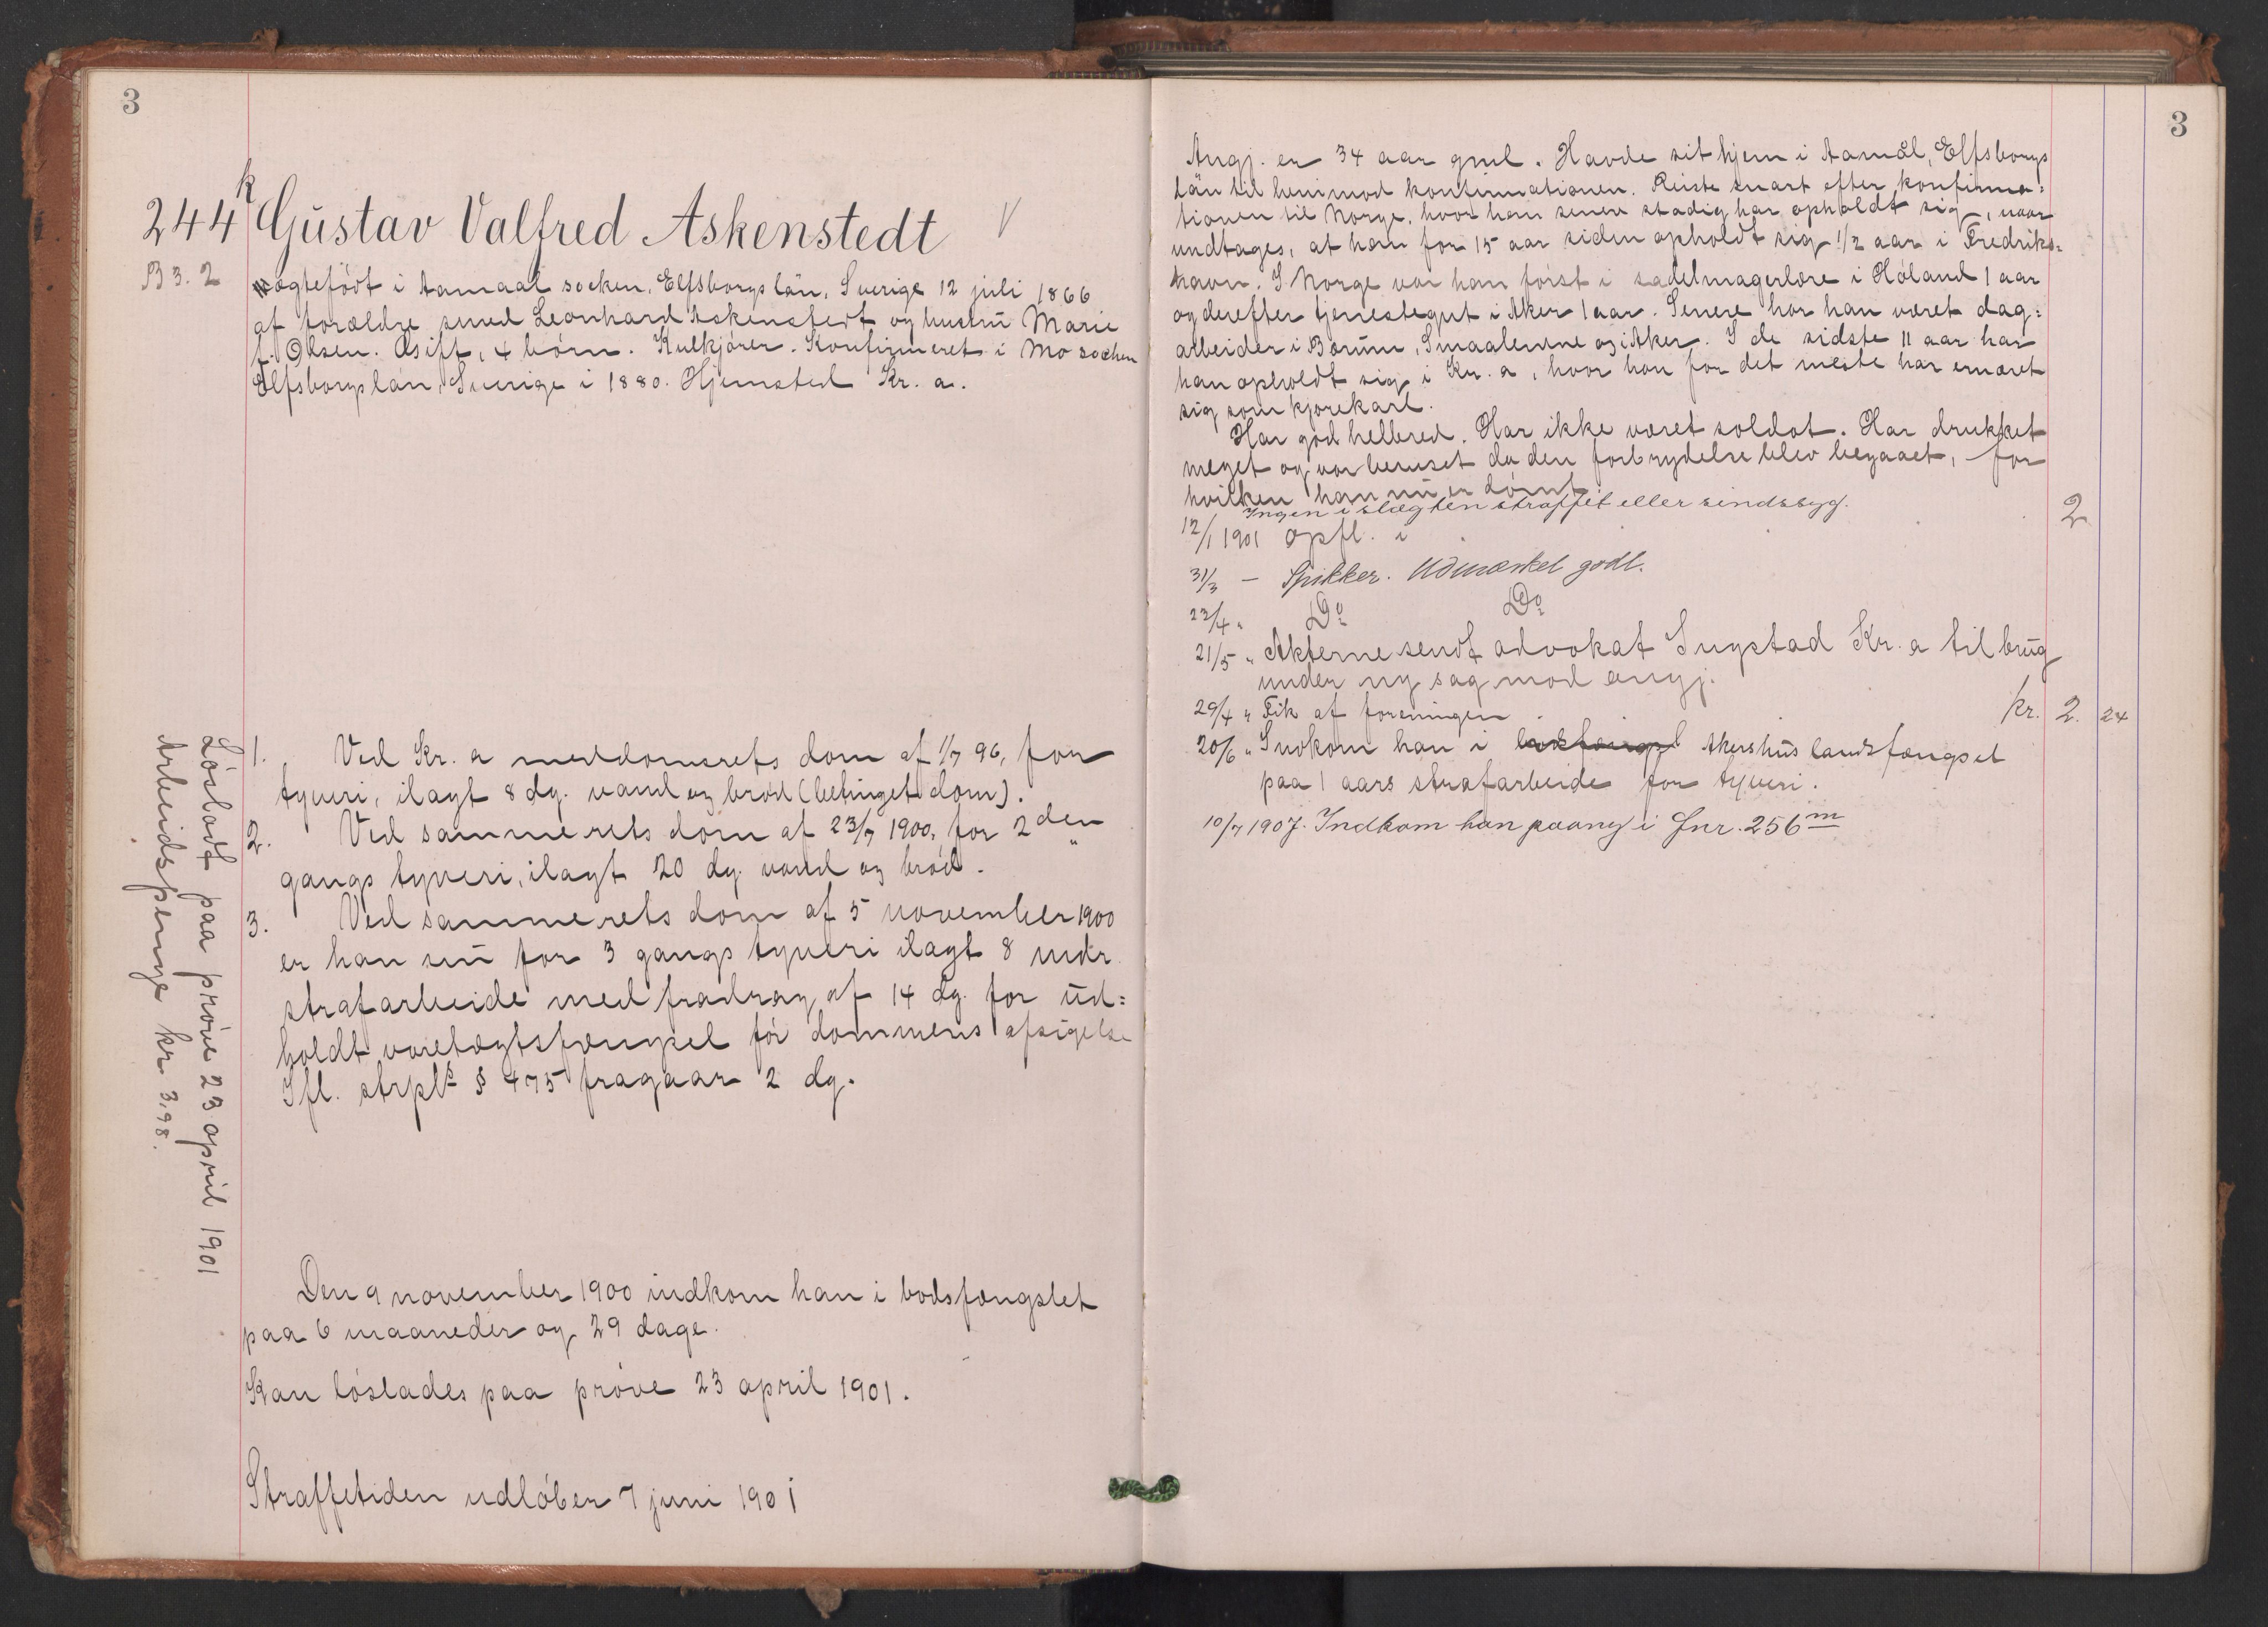 3
244 k Gustav Valfred Askenstedt V
B 3. 2
ægtefødt i Aamaal socken, Elfsborgs län, Sverige 12 juli 1866
af forældre smed Leonhard Askenstedt og hustru Marie
f. Olsen. Gift, 4 børn. Kulkjører. Konfirmeret i Mo socken
Elfsborgs län, Sverige i 1880. Hjemsted Kr. a.
1. Ved Kr. a meddomsrets dom af 1/7 96, for
tyveri, ilagt 8 dg. vand og brød (betinget dom).
2. Ved samme rets dom af 23/7 1900, for 2den
gangs tyveri, ilagt 20 dg. vand og brød.
3. Ved samme rets dom af 5 november 1900
er han nu for 3 gangs tyveri ilagt 8 mdr.
strafarbeide med fradrag af 14 dg. for ud=
holdt varetægtsfængsel før dommens afsigelse
Ifl. strpls § 475 fragaar 2 dg.
Løsladt paa prøve 23 april 1901
Arbeidspenge kr 3,98.
Den 9 november 1900 indkom han i bodsfængslet
paa 6 maaneder og 29 dage.
Kan løslades paa prøve 23 april 1901.
Straffetiden udløber 7 juni 1901
3
Angj. er 34 aar gml. Havde sit hjem i Aamål, Elfsborgs
län til henimod konfirmationen. Reiste snart efter konfirma=
tionen til Norge, hvor han senere stadig har opholdt sig, naar
undtages, at han for 15 aar siden opholdt sig 1/2 aar i Fredriks=
havn. I Norge var han først i sadelmagerlære i Høland 1 aar
og derefter tjenestegut i Aker 1 aar. Senere har han været dag=
arbeider i Bærum, Smaalenene og i Aker. I de sidste 11 aar har
han opholdt sig i Kr. a, hvor han for det meste har ernæret
sig som kjørekarl.
Har god helbred. Har ikke været soldat. Har drukket
meget og var beruset da den forbrydelse blev begaaet, for
hvilken han nu er dømt.
Ingen i slægten straffet eller sindssyg.
12/1 1901 opfl. i 2
31/3 — Spikker. Udmærket godt.
23/4 " Do Do
21/5 " Akterne sendt advokat Sugstad Kr. a til brug
under ny sag mod angj.
29/4 " Fik af foreningen kr. 2. 24
20/6 " Indkom han i bodsfængsl Akershus landsfængsel
paa 1 aars strafarbeide for tyveri.
10/7 1907. Indkom han paany i fnr. 256 m